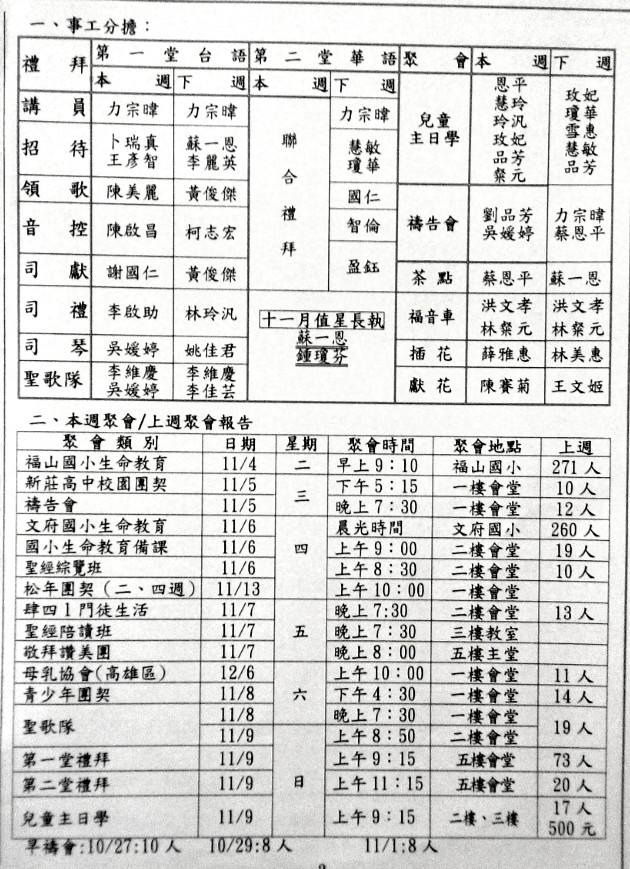 一、事工分擔：
禮拜 第一堂台語 第二堂華語 聚會 本週 下週
本週 下週 本週 下週
講員 力宗暐 力宗暐 聯合禮拜 力宗暐 兒童主日學 恩平 慧玲 玲汎 玫妃 品芳 粲元 玫妃 瓊華 雪惠 慧敏 品芳
招待 卜瑞真 王彥智 蘇一恩 李麗英 慧敏 瓊華
領歌 陳美麗 黃俊傑 國仁 禱告會 劉品芳 吳媛婷 力宗暐 蔡恩平
音控 陳啟昌 柯志宏 智倫
司獻 謝國仁 黃俊傑 盈鈺 茶點 蔡恩平 蘇一恩
司禮 李啟助 林玲汎 十一月值星長執 蘇一恩 鍾瓊芬 福音車 洪文孝 林粲元 洪文孝 林粲元
司琴 吳媛婷 姚佳君 插花 薛雅惠 林美惠
聖歌隊 李維慶 吳媛婷 李維慶 李佳芸 獻花 陳賽菊 王文姬
二、本週聚會/上週聚會報告
聚會類別 日期 星期 聚會時間 聚會地點 上週
福山國小生命教育 11/4 二 早上9：10 福山國小 271人
新莊高中校園團契 11/5 三 下午5：15 一樓會堂 10人
禱告會 11/5 晚上7：30 一樓會堂 12人
文府國小生命教育 11/6 四 晨光時間 文府國小 260人
國小生命教育備課 11/6 上午9：00 二樓會堂 19人
聖經綜覽班 11/6 上午8：30 二樓會堂 10人
松年團契（二、四週） 11/13 上午10：00 一樓會堂
肆四1門徒生活 11/7 五 晚上7:30 二樓會堂 13人
聖經陪讀班 11/7 晚上7：30 三樓教室
敬拜讚美團 11/7 晚上8：00 五樓主堂
母乳協會(高雄區) 12/6 六 上午10：00 一樓會堂 11人
青少年團契 11/8 下午4：30 一樓會堂 14人
聖歌隊 11/8 晚上7：30 一樓會堂 19人
11/9 上午8：50 二樓會堂
第一堂禮拜 11/9 日 上午9：15 五樓會堂 73人
第二堂禮拜 11/9 上午11：15 五樓會堂 20人
兒童主日學 11/9 上午9：15 二樓、三樓 17人 500元
早禱會:10/27:10人 10/29:8人 11/1:8人